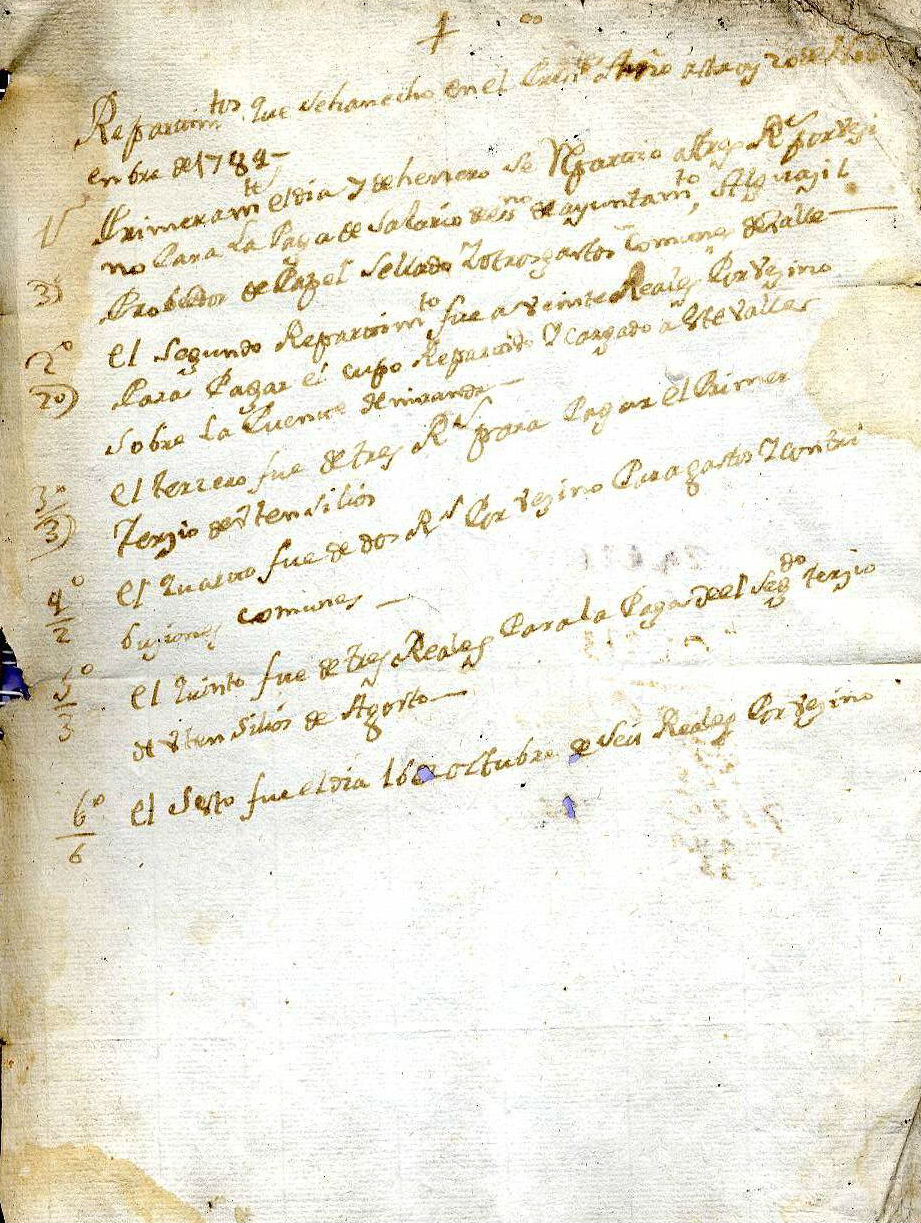 Repartimtos que se han echo en el Añño asta oy 20 de Nobi
enbre de 1784
1º Primeramte el dia 7 de henero se Repartio a tres Rs por vezi
no Para La Paga de Salario de ssno de ayuntamto, Alguazil
3) Probehedor de Papel Sellado Y otros gastos Comunes de Valle
2º el Segundo Repartimto fue a veinte Reales Por Vezino
20) Para Pagar el cupo Repartido Y cargado a este Valle
sobre La Puente de miranda
3º el terzero fue de tres Rs para Pagar el Primer
3) Terzio de Utensilios
4º el Quarto fue de dos Rs Por vezino Para gastos Y contri
2 buziones comunes
5º el Quinto fue de tres Reales Para la Paga de el Segdo terzio
3 de Utensilios de Agosto
6º el Sesto fue el dia 16 de octubre de Seis Reales Por vezino
6